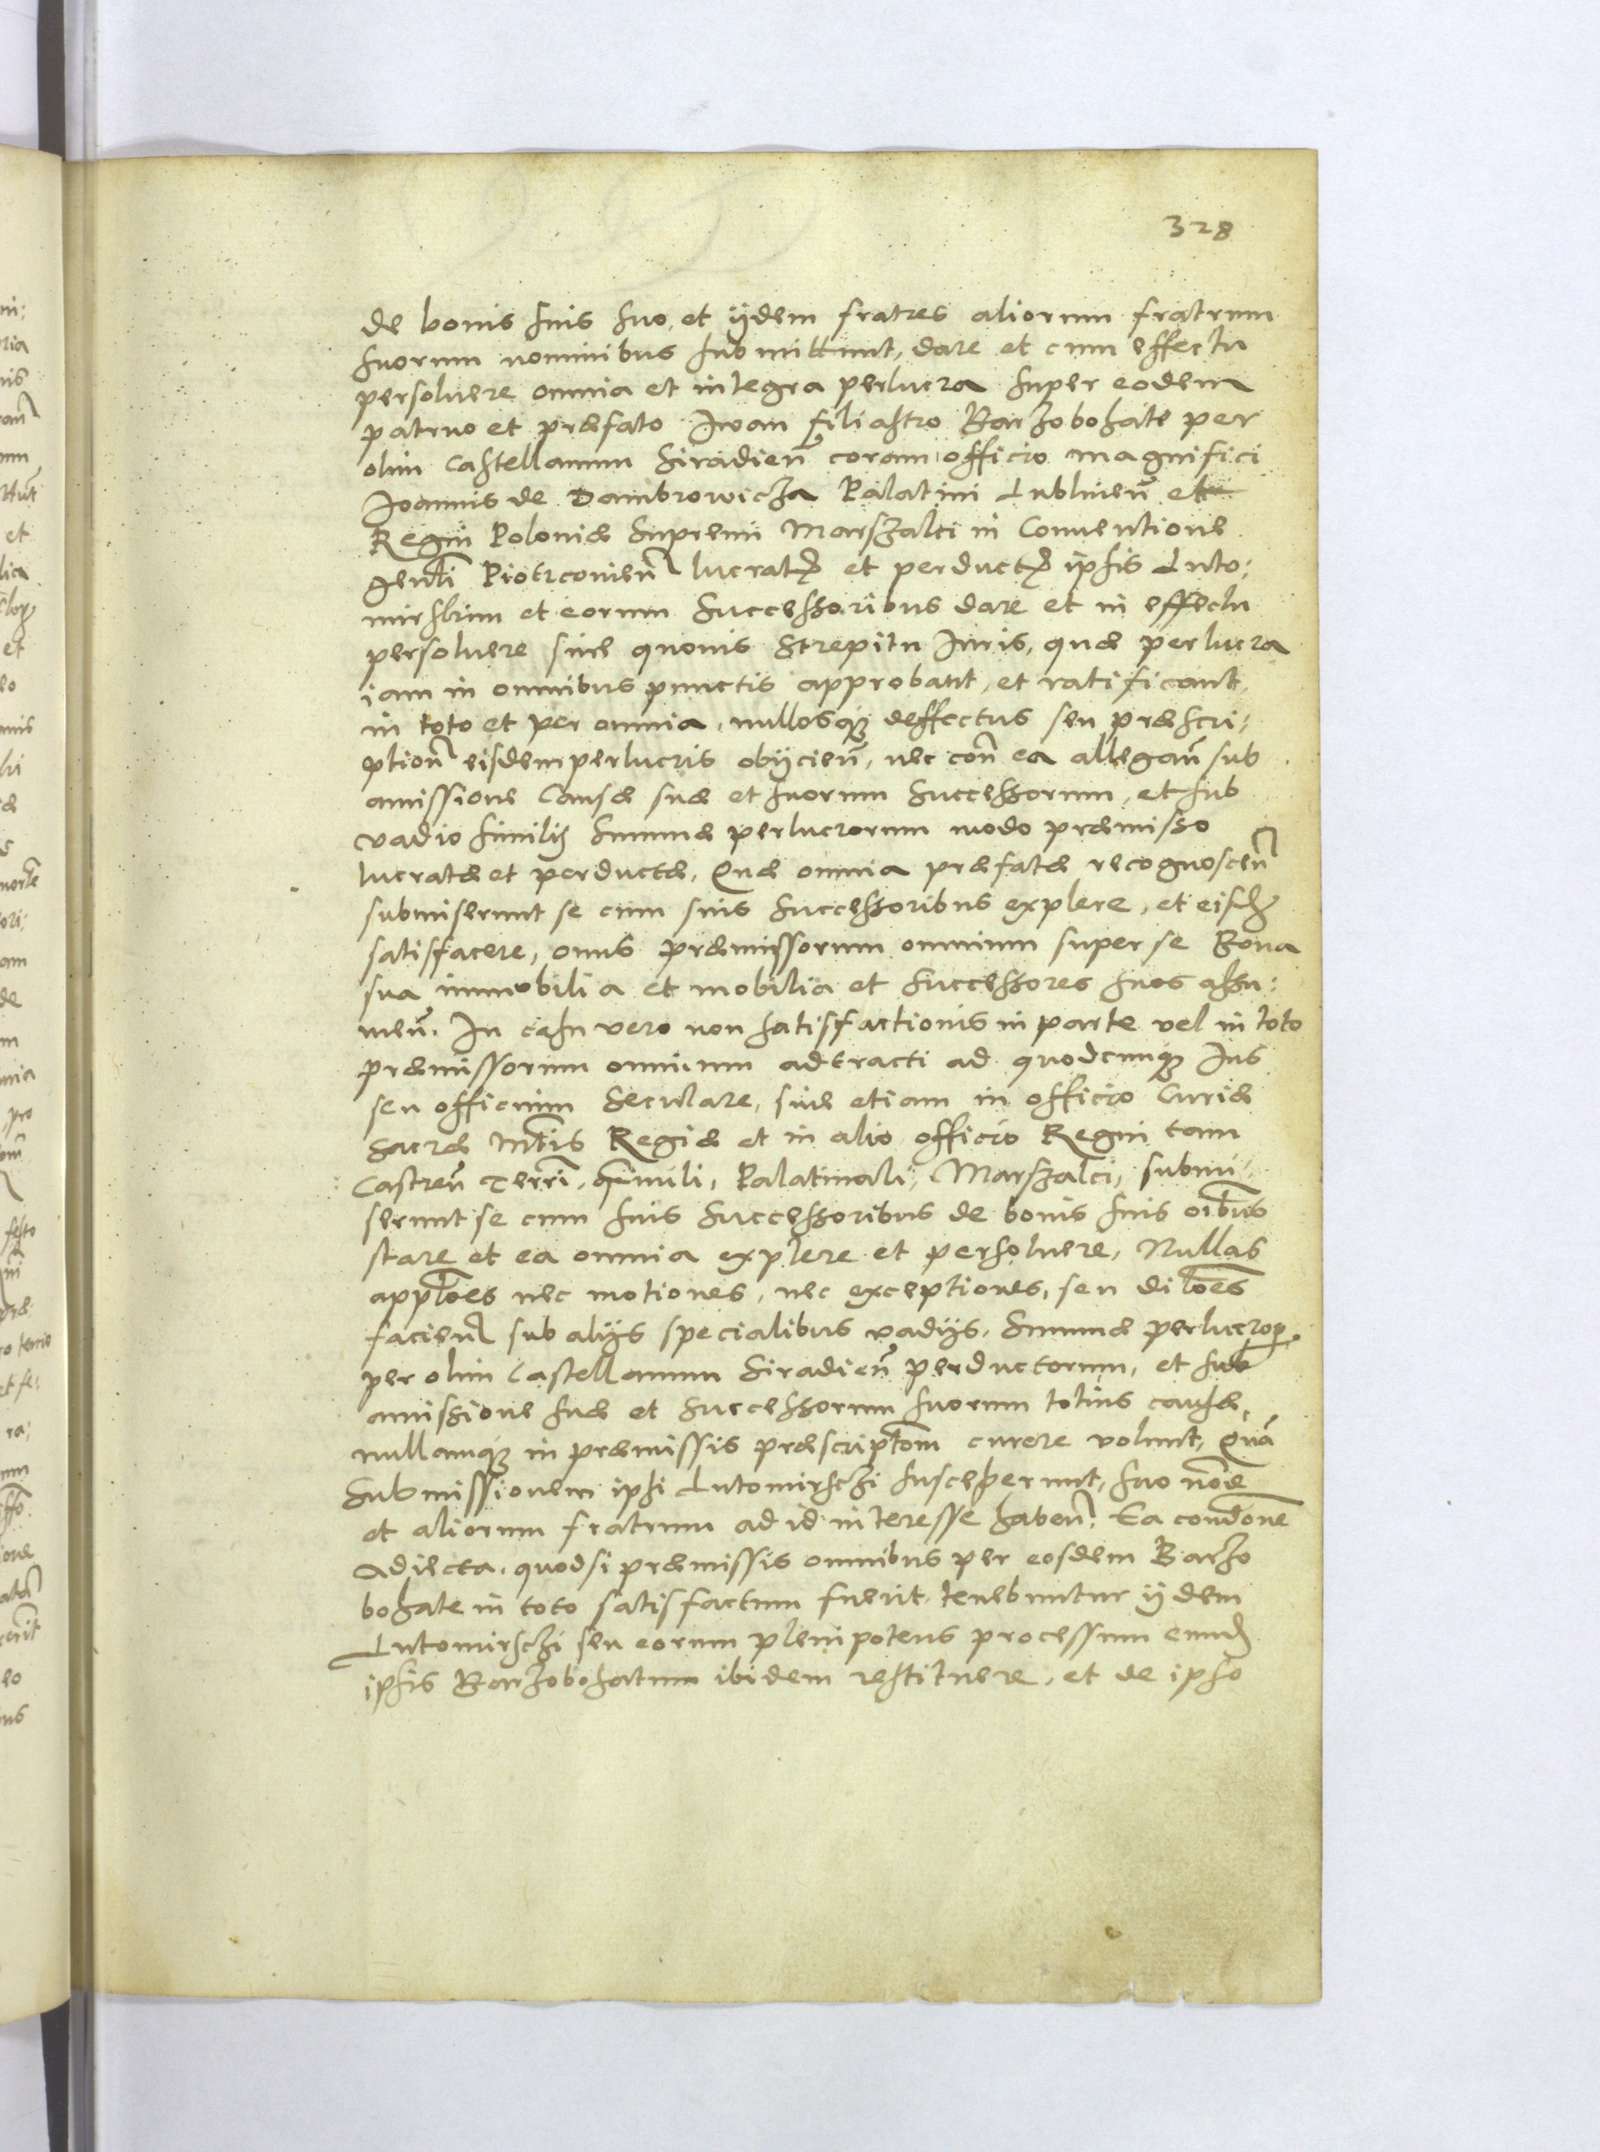 328
de bonis suis suo, et ijdem fratres aliorum fratrum
suorum nominibus submittunt, dare et cum effectu
persoluere omnia et integra perlucra super eodem
patruo et præfato Iwan filiastro Barzobohate per
olim Castellanum Siradien̄ coram officio magnifici
Ioannis de Dambrowicza Palatini Lublinen̄ et
Regni Poloniæ Supremi Marszalci in Conuentione
gen̄li Piotrconien̄ lucratꝝ et perductꝝ ipsis Luto:
mirskim et eorum Successoribus dare et in effectu
persoluere sine quouis strepitu Iuris, quæ perlucra
iam in omnibus punctis approbant, et ratificant,
in toto et per omnia, nullosqꝫ deffectus seu præscri:
ption̄ eisdem perlucris obijcien̄, nec con̄ ea allegan̄ sub
amissione Causæ suæ et suorum Successorum, et sub
vadio similis Summæ perlucrorum modo præmisso
lucratæ et perductæ, Quæ omnia præfatæ recognoscen̄
submiserunt se cum suis Successoribus explere, et eisdꝫ
satisfacere, onus præmissorum omnium super se Bona
sua immobilia et mobilia et Successores suos assu:
men̄. In casu vero non satisfactionis in parte vel in toto
præmissorum omnium adtracti ad quodcunqꝫ Ius
seu officium Seculare, siue etiam in officio Curiæ
Sacræ M̄tis Regiæ et in alio officio Regni tam
Castren̄ Terr̄i, Palatinali, Marszalci, submi:
serunt se cum suis Successoribus de bonis suis oībus
stare et ea omnia explere et persoluere, Nullas
appl̄oes nec motiones, nec exceptiones, seu dil̄oes
facien̄ sub alijs specialibus vadijs, Summæ perlucroꝝ
per olim Castellanum Siradien̄ perductorum, et sub
amissione suæ et Successorum suorum totius causæ,
nullamqꝫ in præmissis præscriptōm currere volunt, Quā
Submissionem ipsi Lutomirschi susceperunt, suo nōe
et aliorum fratrum ad id interesse haben̄. Ea cond̄one
adiecta, quod si præmissis omnibus per eosdem Barzo
bohate in toto satisfactum fuerit, tenebuntur ijdem
Lutomirschi seu eorum plenipotens processum eundꝫ
ipsis Barzobohatum ibidem restituere, et de ipso